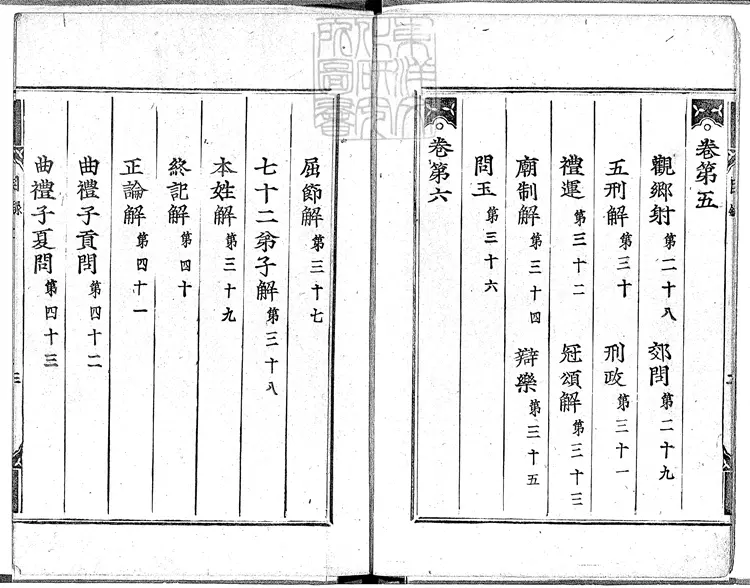 卷第五
觀鄉射第二十八 郊問第二十九
五刑解第三十 刑政第三十一
禮運第三十二 冠頌解第三十三
廟制解第三十四 辯樂第三十五
問玉第三十六
卷第六
屈節解第三十七
七十二弟子解第三十八
本姓解第三十九
終記解第四十
正論解第四十一
曲禮子貢問第四十二
曲禮子夏問第四十三
目錄
三